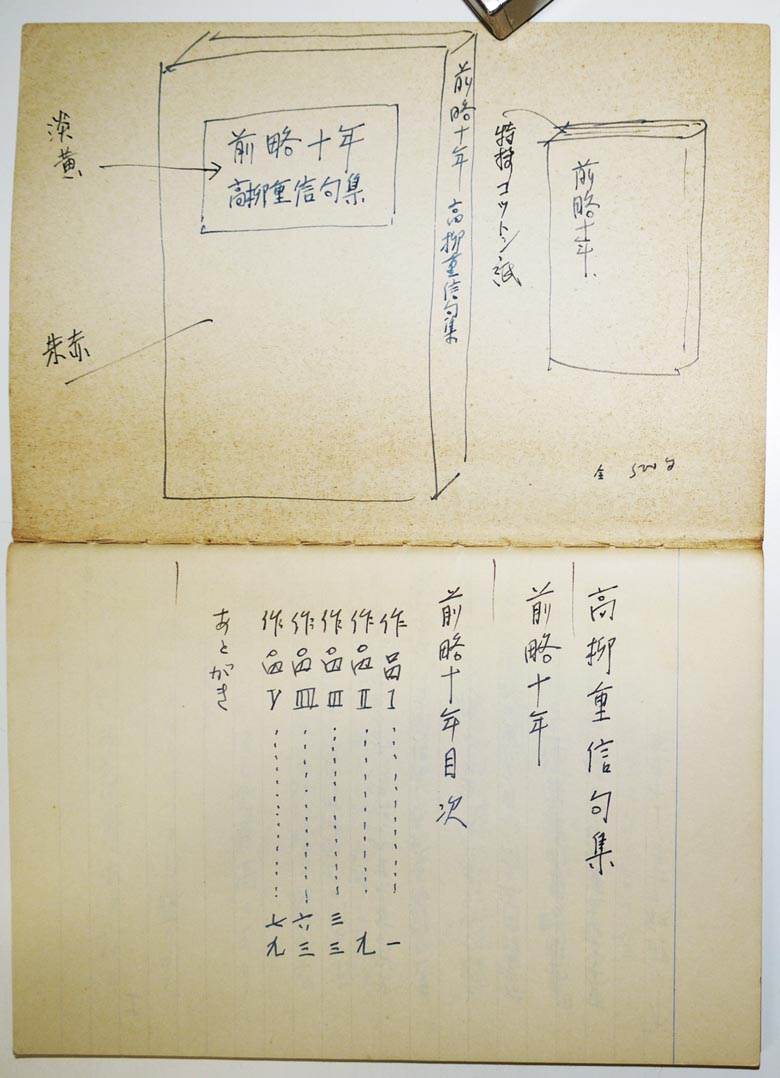 淡黄
前略十年
高柳重信句集
朱赤
前略十年 高柳重信句集
コットン紙
前略十年
全
高柳重信句集
前略十年
前略十年目次
作品Ⅰ……………一
作品Ⅱ……………九
作品Ⅲ……………三三
作品IIII……………六三
作品Ⅴ……………七九
あとがき